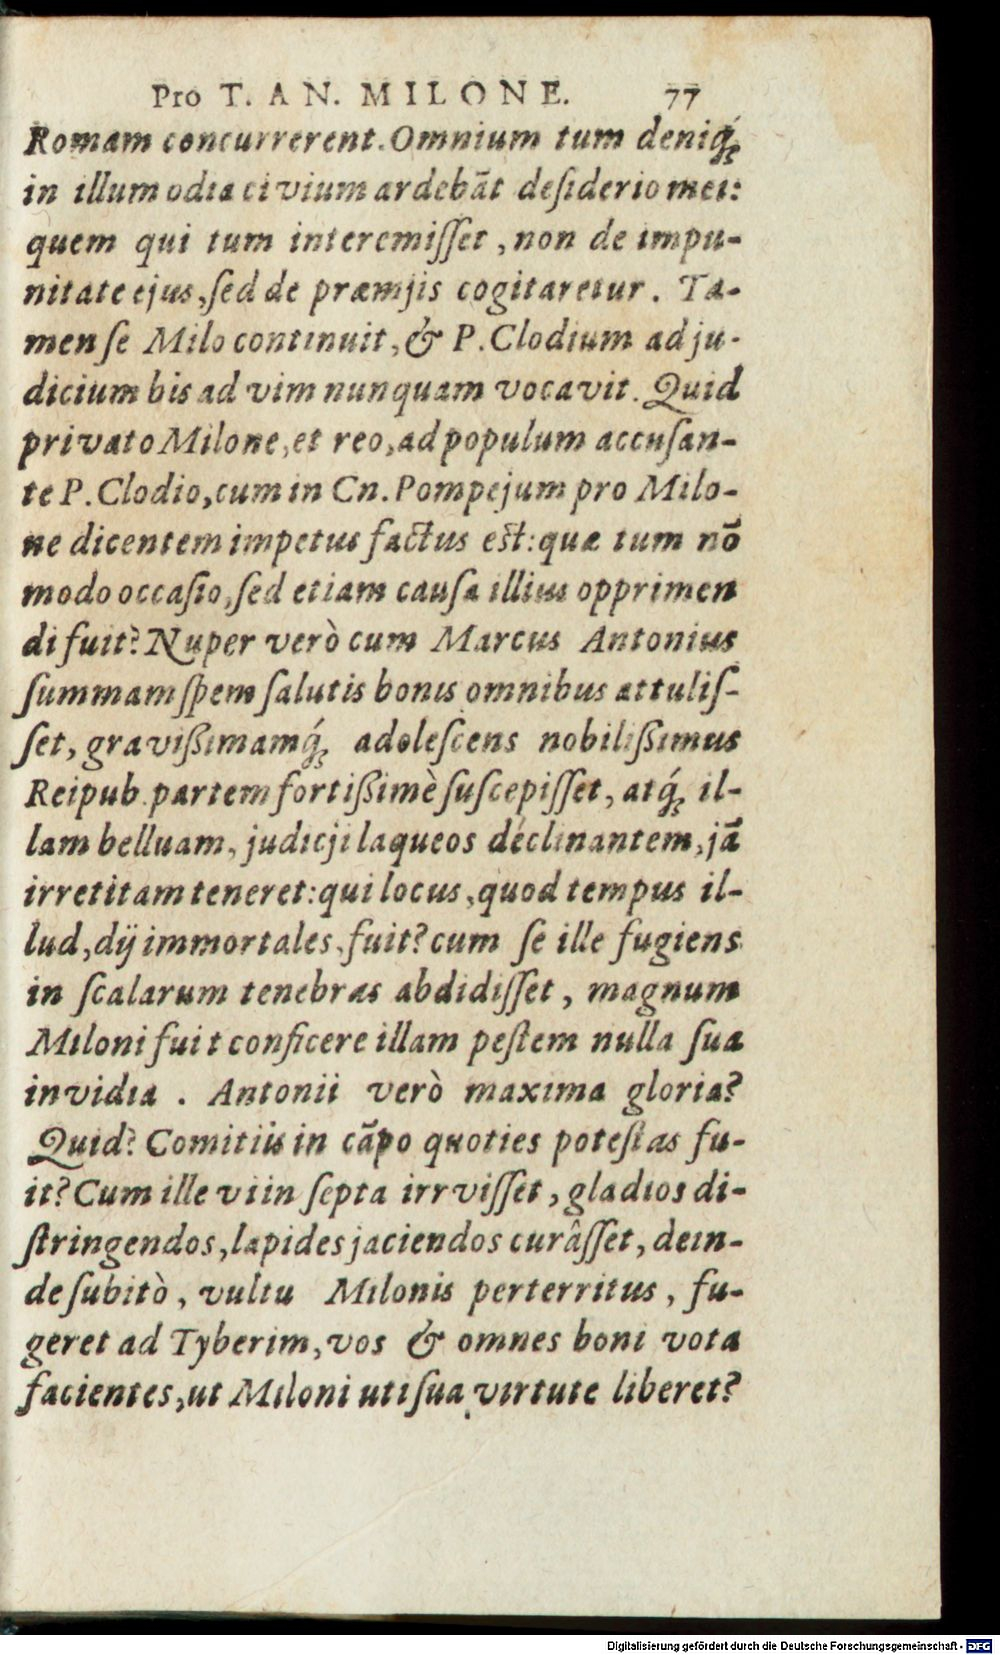 Pro T. A N. M I L O N E. 77
Romam concurrerent. Omnium tum deniq́;
in illum odia civium ardebāt desiderio mei:
quem qui tum interemisset, non de impu-
nitate ejus, sed de præmjis cogitaretur. Ta-
men se Milo continuit, & P. Clodium ad ju-
dicium bis ad vim nunquam vocavit. Quid
privato Milone, et reo, ad populum accusan-
te P. Clodio, cum in Cn. Pompejum pro Milo-
ne dicentem impetus factus est: quæ tum nō
modo occasio, sed etiam causa illius opprimen
di fuit? Nuper verò cum Marcus Antonius
summam spem salutis bonis omnibus attulis-
set, gravißimamq́; adolescens nobilißimus
Reipub. partem fortißimè suscepisset, atq́; il-
lam belluam, judicji laqueos déclinantem, jā
irretitam teneret: qui locus, quod tempus il-
lud, dij immortales, fuit? cum se ille fugiens
in scalarum tenebras abdidisset, magnum
Miloni fuit conficere illam pestem nulla sua
invidia. Antonii verò maxima gloria?
Quid? Comitiis in cāpo quoties potestas fu-
it? Cum ille vi in septa irrvisset, gladios di-
stringendos, lapides jaciendos curâsset, dein-
de subitò, vultu Milonis perterritus, fu-
geret ad Tyberim, vos & omnes boni vota
facientes, ut Miloni uti sua virtute liberet?
Digitalisierung gefördert durch die Deutsche Forschungsgemeinschaft - DFG